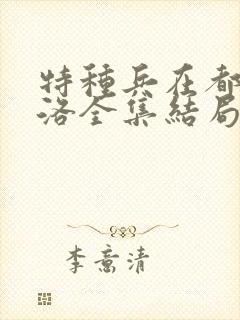 特種兵在都
洛全集結局
李意清